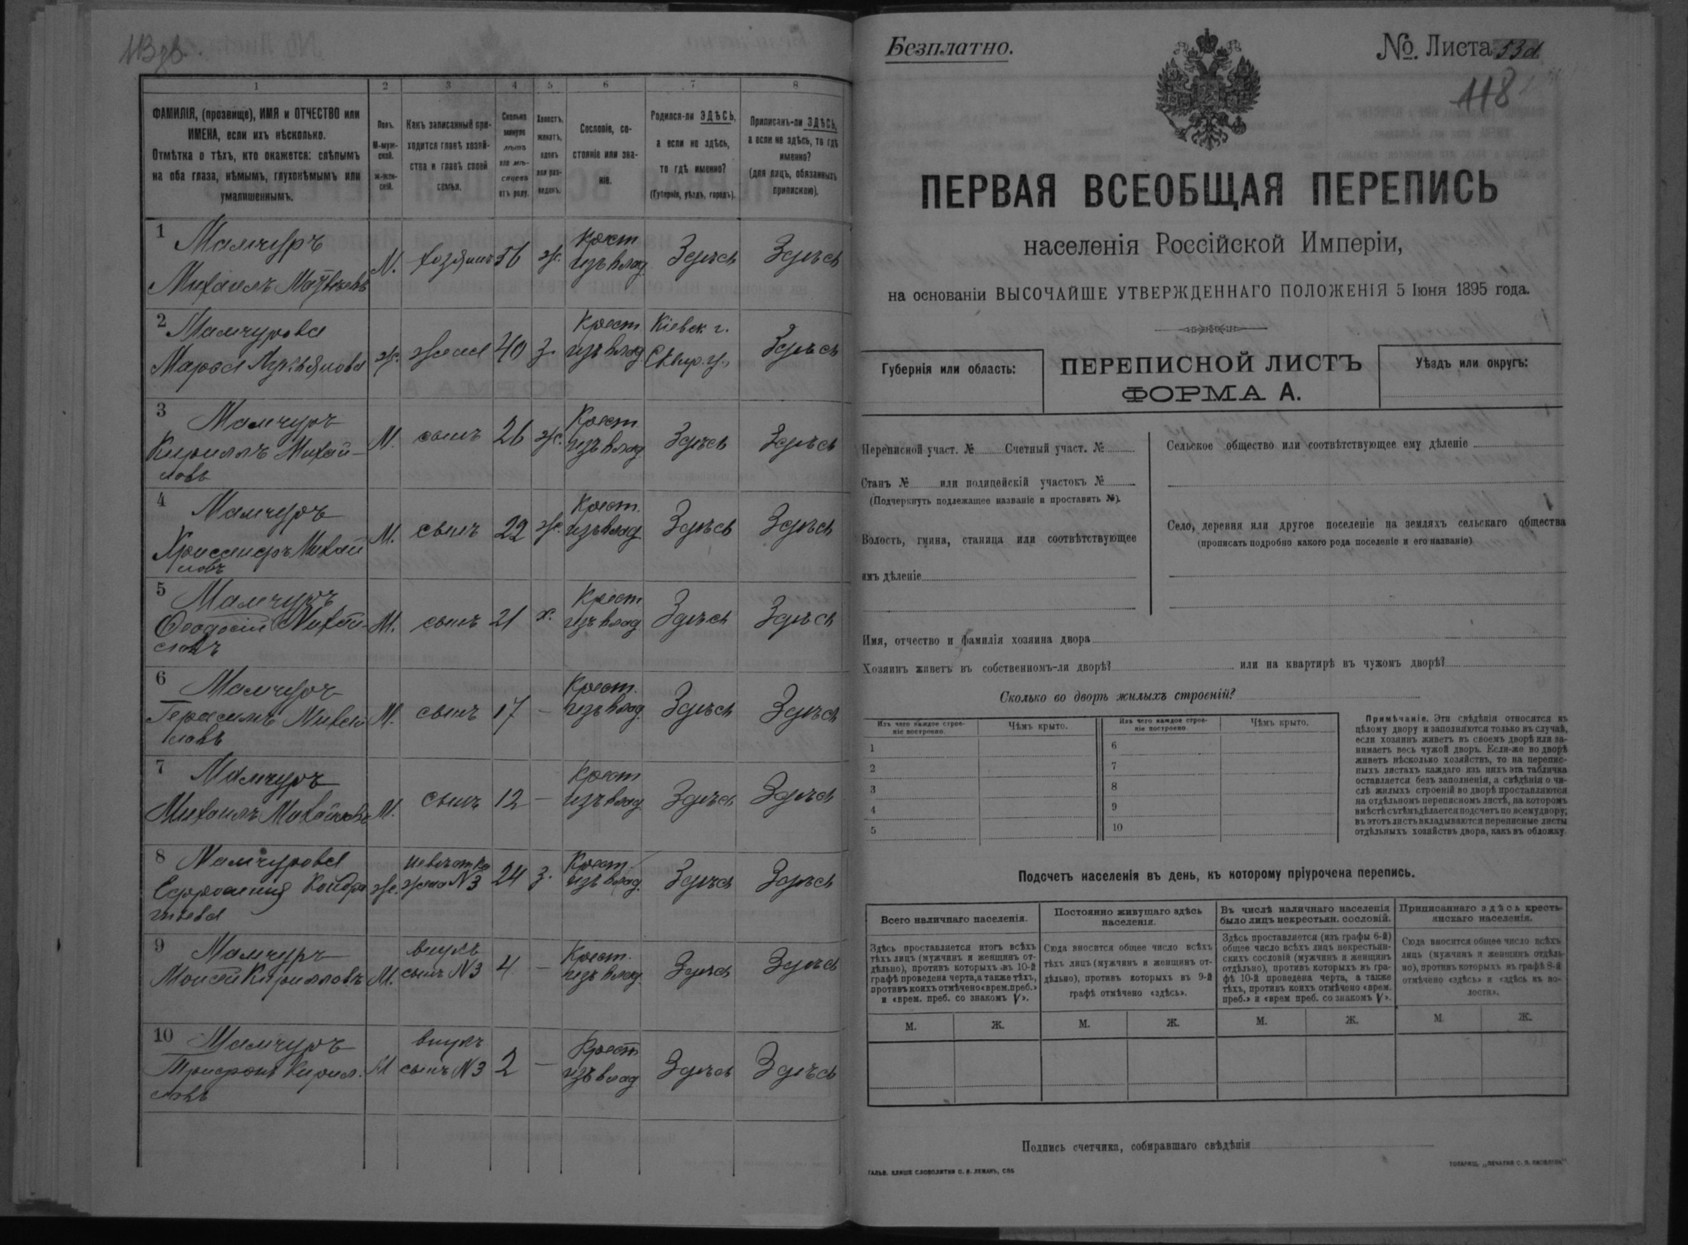 1 2 3 4 5 6 7 8
ФАМИЛІЯ, (прозвище), ИМЯ и ОТЧЕСТВО или
ИМЕНА, если ихъ нѣсколько.
Отмѣтка о тѣхъ, кто окажется: слѣпымъ
на оба глаза, нѣмымъ, глухонѣмымъ или
умалишеннымъ.
Полъ.
М-муж-
ской.
Ж-жен-
скій.
Какъ записанный при-
ходится главѣ хозяй-
ства и главѣ своей
семьи.
Сколько
минуло
лѣтъ
или мѣ-
сяцевъ
отъ роду.
Холостъ,
женатъ,
вдовъ
или раз-
веденъ.
Сословіе, со-
стояніе или зва-
ніе.
Родился-ли ЗДѢСЬ,
а если не здѣсь,
то гдѣ именно?
(Губернія, уѣздъ, городъ).
Приписанъ-ли ЗДѢСЬ,
а если не здѣсь, то гдѣ
именно?
(для лицъ, обязанныхъ
припискою).
1 Мамчуръ
Михаилъ М. хозяинъ 56 ж. Крест. изъ влад. Здѣсь Здѣсь
2 Мамчурова
ж. жена 40 з. Крест. изъ влад. Кіевск. г. Сквир. у. Здѣсь
3 Мамчуръ
Кириллъ Михай-
ловъ М. сынъ 26 ж. Крест. изъ влад. Здѣсь Здѣсь
4 Мамчуръ
Михай
ловъ М. сынъ 22 ж. Крест. изъ влад. Здѣсь Здѣсь
5 Мамчуръ
Ѳеодосій Михай-
ловъ М. сынъ 21 х. Крест. изъ влад. Здѣсь Здѣсь
6 Мамчуръ
Герасимъ Михай
ловъ М. сынъ 17 — Крест. изъ влад. Здѣсь Здѣсь
7 Мамчуръ
Михаилъ Михайловъ М. сынъ 12 — Крест. изъ влад. Здѣсь Здѣсь
8 Мамчурова
ж. невѣстка жена №3 24 з. Крест. изъ влад. Здѣсь Здѣсь
9 Мамчуръ
Моисей Кирилловъ М. внукъ сынъ №3 4 — Крест. изъ влад. Здѣсь Здѣсь
10 Мамчуръ
Трифонъ Кирил.
ловъ М внукъ сынъ №3 2 — Крест. изъ влад. Здѣсь Здѣсь
Безплатно.
№ Листа 53
118
ПЕРВАЯ ВСЕОБЩАЯ ПЕРЕПИСЬ
населенія Россійской Имперіи,
на основаніи ВЫСОЧАЙШЕ УТВЕРЖДЕННАГО ПОЛОЖЕНІЯ 5 Іюня 1895 года.
Губернія или область:
ПЕРЕПИСНОЙ ЛИСТЪ
ФОРМА А.
Уѣздъ или округъ:
Переписной участ. № Счетный участ. №
Станъ № или полицейскій участокъ №
(Подчеркнуть подлежащее названіе и проставить №).
Волость, гмина, станица или соотвѣтствующее
имъ дѣленіе
Сельское общество или соотвѣтствующее ему дѣленіе
Село, деревня или другое поселеніе на земляхъ сельскаго общества
(прописать подробно какого рода поселеніе и его названіе)
Имя, отчество и фамилія хозяина двора
Хозяинъ живетъ въ собственномъ-ли дворѣ? или на квартирѣ въ чужомъ дворѣ?
Сколько во дворѣ жилыхъ строеній?
Изъ чего каждое строе-
ніе построено.
Чѣмъ крыто.
Изъ чего каждое строе-
ніе построено
Чѣмъ крыто.
1 6
2 7
3 8
4 9
5 10
Примѣчаніе. Эти свѣдѣнія относятся къ
цѣлому двору и заполняются только въ случаѣ,
если хозяинъ живетъ въ своемъ дворѣ или за-
нимаетъ весь чужой дворъ. Если-же во дворѣ
живетъ нѣсколько хозяйствъ, то на перепис-
ныхъ листахъ каждаго изъ нихъ эта табличка
оставляется безъ заполненія, а свѣдѣнія о чи-
слѣ жилыхъ строеній во дворѣ проставляются
на отдѣльномъ переписномъ листѣ, на которомъ
вмѣстѣ съ тѣмъ дѣлается подсчетъ по всему двору;
въ этотъ листъ вкладываются переписные листы
отдѣльныхъ хозяйствъ двора, какъ въ обложку.
Подсчетъ населенія въ день, къ которому пріурочена перепись.
Всего наличнаго населенія.
Постоянно живущаго здѣсь
населенія.
Въ числѣ наличнаго населенія
было лицъ некрестьян. сословій.
Приписаннаго здѣсь кресть-
янскаго населенія.
Здѣсь проставляется итогъ всѣхъ
тѣхъ лицъ (мужчинъ и женщинъ от-
дѣльно), противъ которыхъ въ 10-й
графѣ проведена черта, а также тѣхъ,
противъ коихъ отмѣчено «врем. преб.»
и «врем. преб. со знакомъ V».
Сюда вносится общее число всѣхъ
тѣхъ лицъ (мужчинъ и женщинъ от-
дѣльно), противъ которыхъ въ 9-й
графѣ отмѣчено «здѣсь».
Здѣсь проставляется (изъ графы 6-й)
общее число всѣхъ лицъ некрестьян-
скихъ сословій (мужчинъ и женщинъ
отдѣльно), противъ которыхъ въ гра-
фѣ 10-й проведена черта, а также
тѣхъ, противъ коихъ отмѣчено «врем.
преб.» и «врем преб. со знакомъ V».
Сюда вносится общее число всѣхъ
лицъ (мужчинъ и женщинъ отдѣль-
но), противъ которыхъ въ графѣ 8-й
отмѣчено «здѣсь» и «здѣсь въ во-
лости».
М. Ж. М. Ж. М. Ж. М. Ж.
Подпись счетчика, собиравшаго свѣдѣнія
ГАЛЬВ. КЛИШЕ СЛОВОЛИТНИ О. И. ЛЕМАНЪ, СПБ
ТОВАРИЩ. „ПЕЧАТНЯ С. П. ЯКОВЛЕВА“